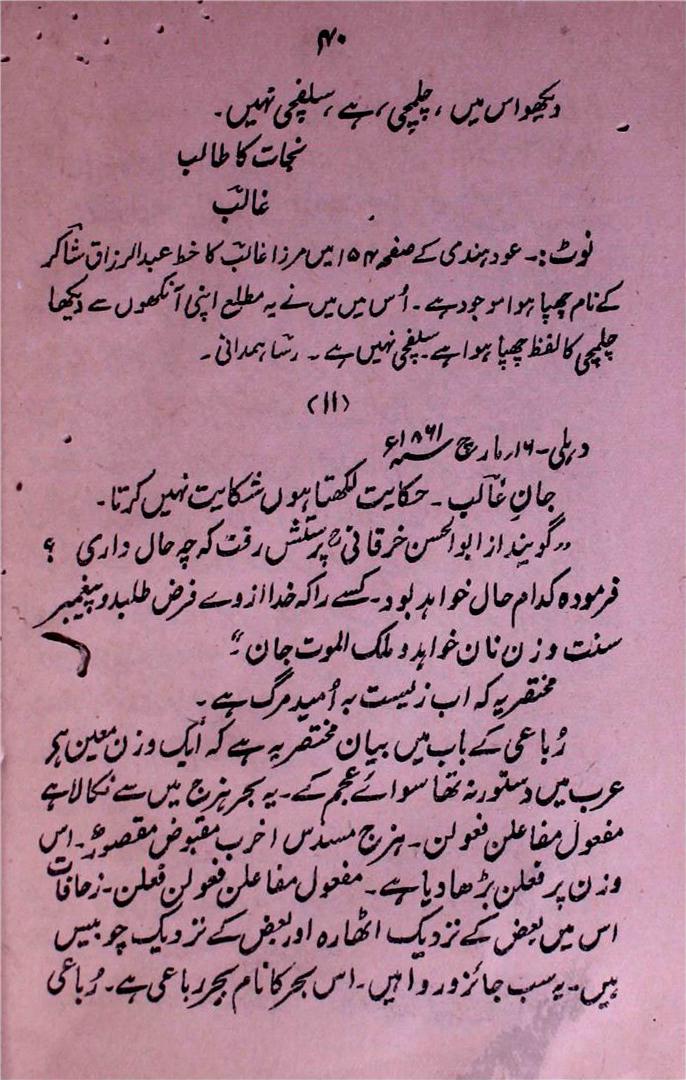 ۴۰
دیکھو اس میں ، چلمچی ، ہے ، سلفچی نہیں ۔
نجات کا طالب
غالبؔ
نوٹ :۔ عود ہندی کے صفحہ ۱۵۴ میں مرزا غالبؔ کا خط عبدالرزاق شاکرؔ
کے نام چھپا ہوا موجود ہے ۔ اُس میں میں نے یہ مطلع اپنی آنکھوں سے دیکھا
چلمچی کا لفظ چھپا ہوا ہے سلفچی نہیں ہے ۔ رساؔ ہمدانی ۔
(۱۱)
دہلی ۔ ۱۶؍ مارچ سنہ ۱۸۶۱ء
جانِ غالبؔ ۔ حکایت لکھتا ہوں شکایت نہیں کرتا ۔
“گویند از ابوالحسن خرقانیؒ پرسش رفت کہ چہ حال داری ؟
فرمودہ کدام حال خواہد بود ۔ کسے راکہ خدا از وے فرض طلبد و پیغمبر
سنت و زن نان خواہد و ملک الموت جان ۔”
مختصر یہ کہ اب زیست بہ اُمیدِ مرگ ہے ۔
رُباعی کے باب میں بیان مختصر یہ ہے کہ اُیک وزن معین ہر
عرب میں دستور نہ تھا سوائے عجم کے ۔ یہ بحر ہزج میں سے نکالا ہے
مفعول مفاعلن فعولن ۔ ہزج مسدس اخرب مقبوض مقصور ۔ اس
وزن پر فعلن بڑھا دیا ہے ۔ مفعول مفاعلن فعولن فعلن ۔ زحافات
اس میں بعض کے نزدیک اٹھارہ اور بعض کے نزدیک چوبیس
ہیں ۔ یہ سب جائز و روا ہیں ۔ اس بحر کا نام بحر رباعی ہے ۔ رُباعی